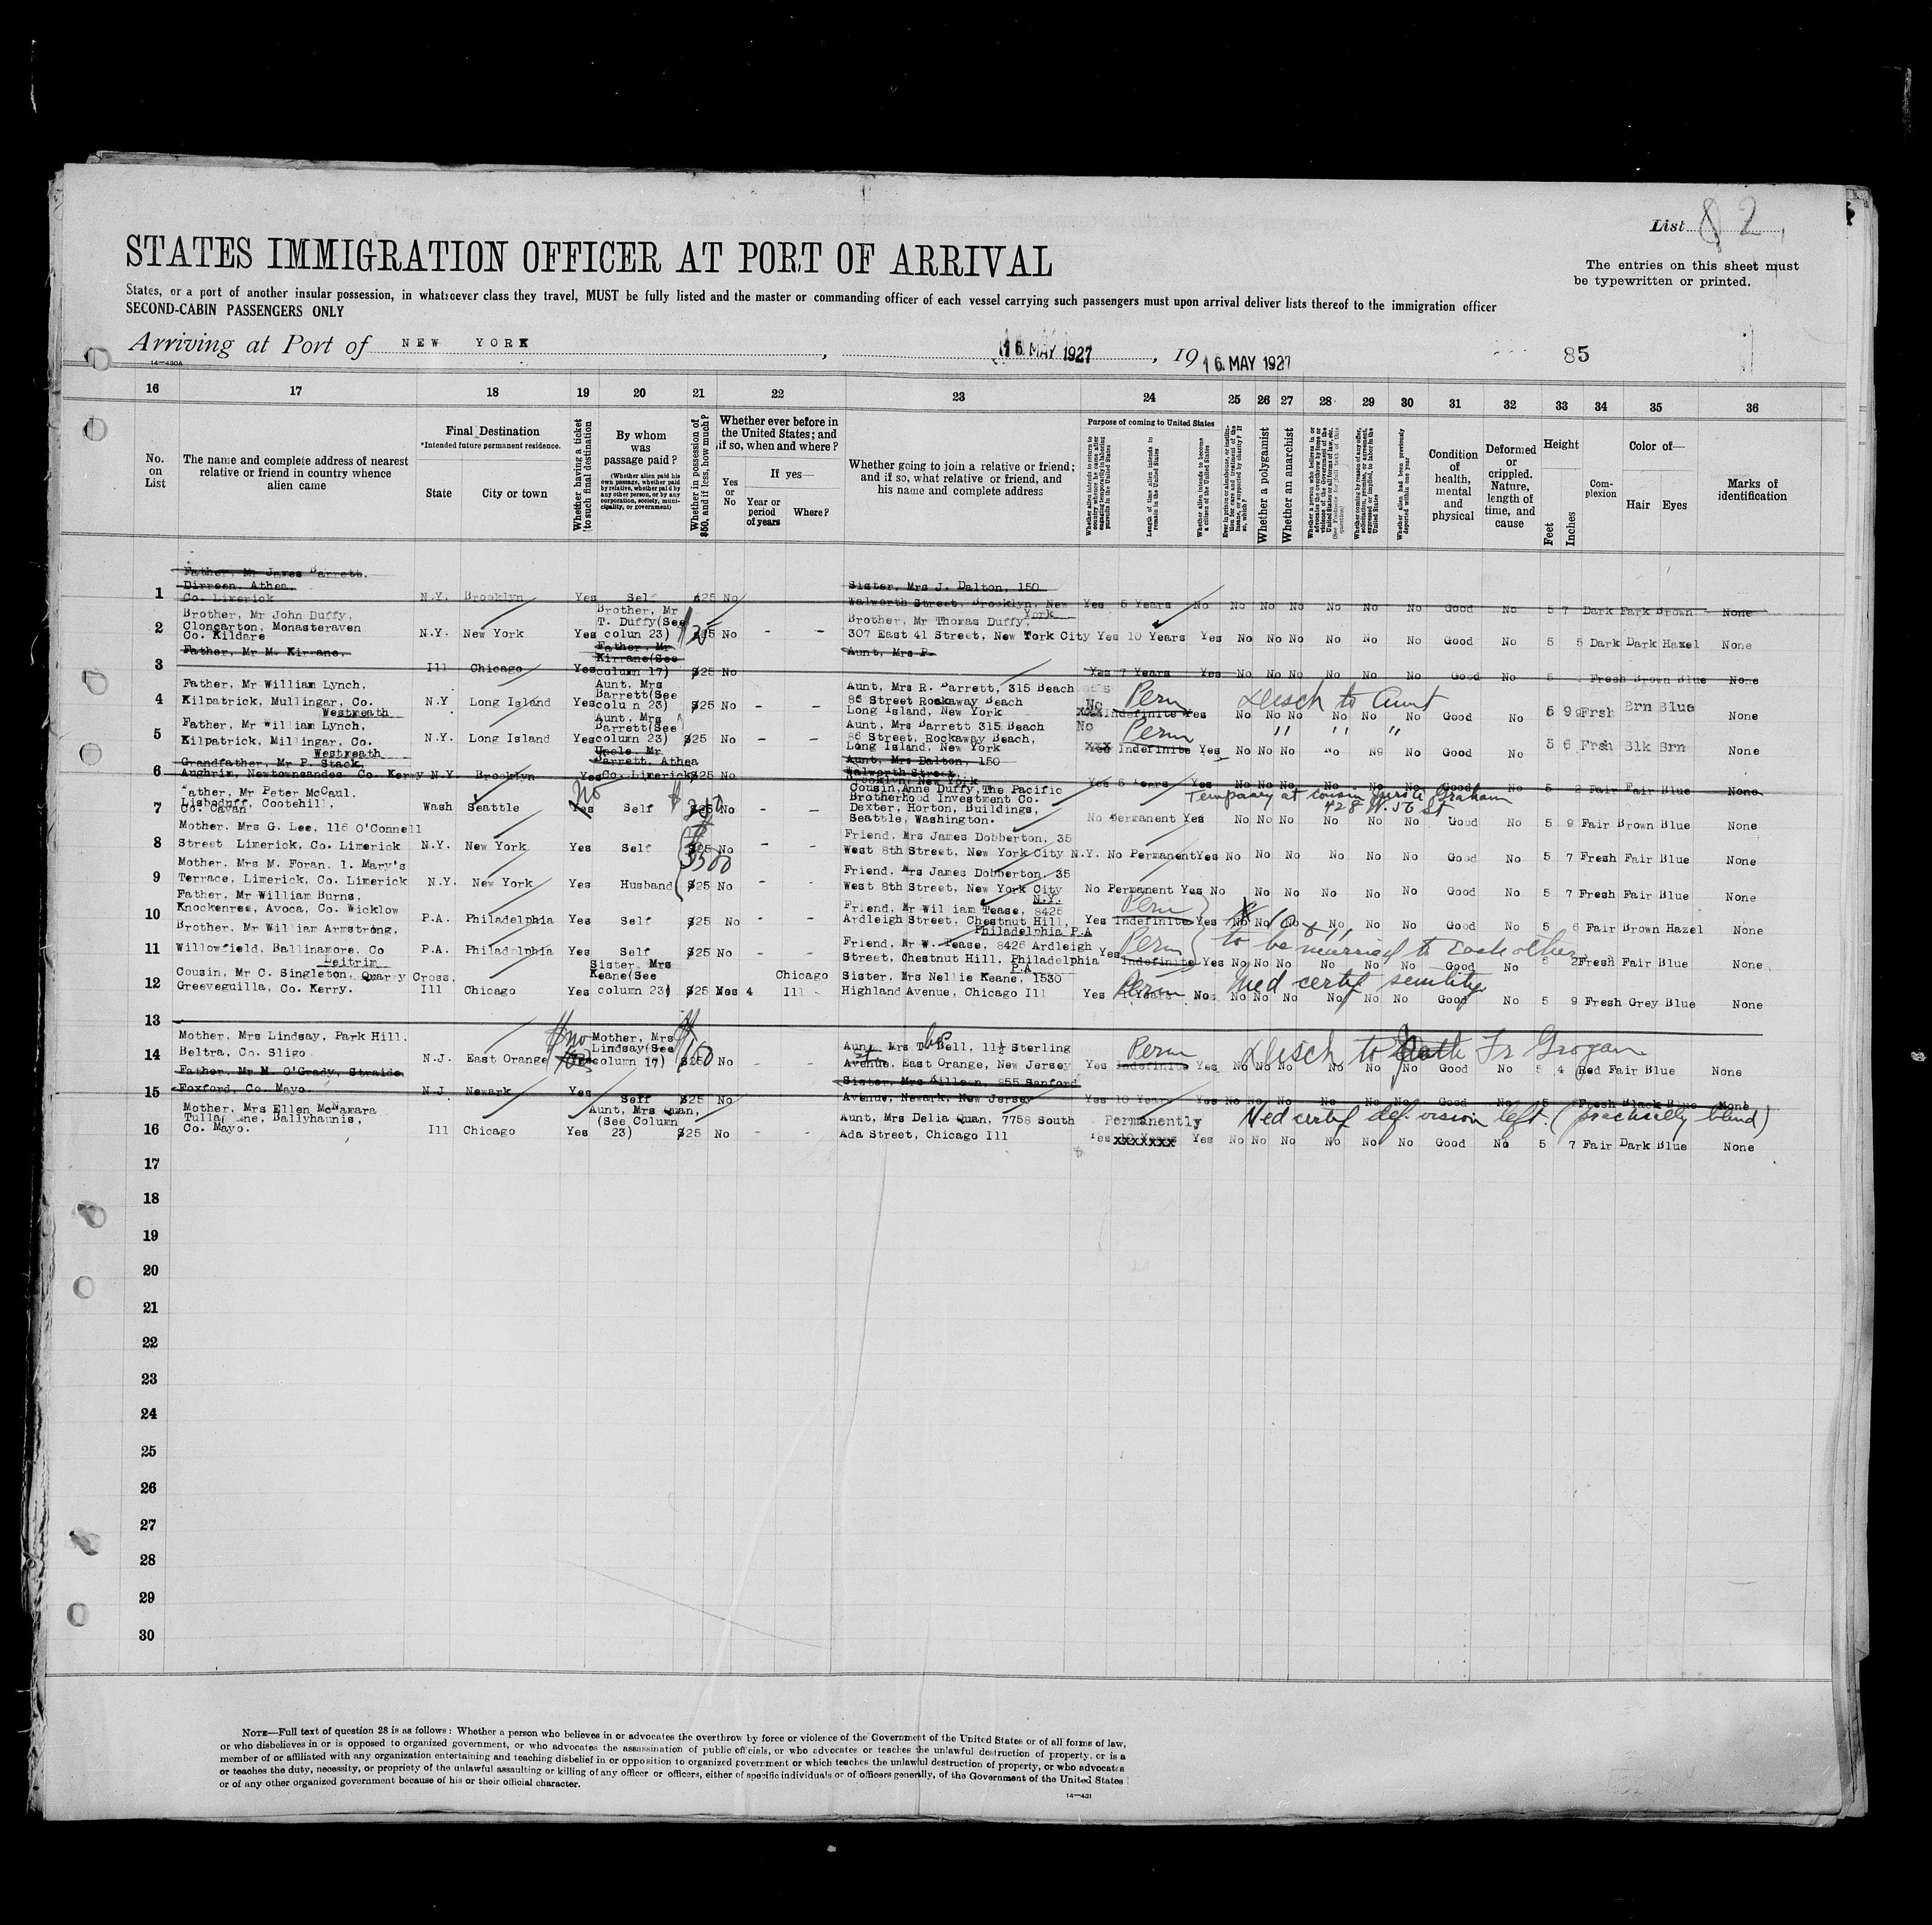 List 82
STATES IMMIGRATION OFFICER AT PORT OF ARRIVAL
The entries on this sheet must
be typewritten or printed.
States, or a port of another insular possession, in whatsoever class they travel, MUST be fully listed and the master or commanding officer of each vessel carrying such passengers must upon arrival deliver lists thereof to the immigration officer
SECOND-CABIN PASSENGERS ONLY
Arriving at Port of NEW YORK, 16 MAY 1927, 19 16 MAY 1927 85
14—430A
16 17 18 19 20 21 22 23 24 25 26 27 28 29 30 31 32 33 34 35 36
No. on List
The name and complete address of nearest relative or friend in country whence alien came
Final Destination
*Intended future permanent residence.
State City or town
Whether having a ticket to such final destination
By whom was passage paid?
(Whether alien paid his own passage, whether paid by relative, whether paid by any other person, or by any corporation, society, municipality, or government)
Whether in possession of $50, and if less, how much?
Whether ever before in the United States; and if so, when and where?
Yes or No
If yes—
Year or period of years Where?
Whether going to join a relative or friend; and if so, what relative or friend, and his name and complete address
Purpose of coming to United States
Whether alien intends to return to country whence he came after engaging temporarily in laboring pursuits in the United States
Length of time alien intends to remain in the United States
Whether alien intends to become a citizen of the United States
Whether a polygamist
Whether an anarchist
Whether alien had been previously deported within one year
Condition of health, mental and physical
Deformed or crippled. Nature, length of time, and cause
Height
Feet Inches
Complexion
Color of—
Hair Eyes
Marks of identification
1 Father, Mr James Barrett,
Dirreen, Athea
Co. Limerick N.Y. Brooklyn Yes Self $25 No
Sister, Mrs J. Dalton, 150
Walworth Street, Brooklyn, New York Yes 5 Years No No No No No No No Good No 5 7 Dark Dark Brown None
2 Brother, Mr John Duffy,
Cloncarton, Monasteraven
Co. Kildare N.Y. New York Yes Brother, Mr T. Duffy(See colun 23) No - -
Brother, Mr Thomas Duffy,
307 East 41 Street, New York City Yes 10 Years Yes No No No No No No Good No 5 5 Dark Dark Hazel None
3 Father, Mr M. Kirrane,
Ill Chicago Yes Father, Mr Kirrane(See column 17) $25 No
Aunt, Mrs P.
Yes 7 Years Yes No No No No No No Good No 5 Fresh Brown Blue None
4 Father, Mr William Lynch,
Kilpatrick, Mullingar, Co.
Westmeath N.Y Long Island Yes Aunt, Mrs Barrett(See colu n 23) $25 No - -
Aunt, Mrs R. Barrett, 315 Beach
86 Street Rockaway Beach
Long Island, New York No xxx Perm Indefinite Yes Disch to Aunt No No No No No No Good No 5 9 Frsh Brn Blue None
5 Father, Mr William Lynch,
Kilpatrick, Millingar, Co.
Westmeath N.Y. Long Island Yes Aunt, Mrs Barrett(See column 23) $25 No - -
Aunt, Mrs Barrett 315 Beach
86 Street, Rockaway Beach,
Long Island, New York No xxx Perm Indefinite Yes " " " No No No No No No Good No 5 6 Frsh Blk Brn None
6 Grandfather, Mr P. Stack,
Aughrim, Newtownsandes Co. Kerry N.Y. Brooklyn Yes Uncle, Mr Barrett, Athea Co. Limerick $25 No
Aunt, Mrs Dalton, 150
Walworth Street,
Brooklyn, New York Yes 5 Years Yes No No No No No No Good No 5 2 Fair Fair Blue None
7 Father, Mr Peter McCaul,
Lisboduff, Cootehill,
Co. Cavan Wash Seattle No Yes Self No - -
Cousin, Anne Duffy, The Pacific
Brotherhood Investment Co.
Dexter, Horton, Buildings,
Seattle, Washington. No Permanent Yes Temporary at cousin Graham
428 W. 56 St
No No No No No No Good No 5 9 Fair Brown Blue None
8 Mother, Mrs G. Lee, 116 O'Connell
Street Limerick, Co. Limerick N.Y. New York Yes Self $3500 $25 No - -
Friend, Mrs James Dobberton, 35
West 8th Street, New York City N.Y. No Permanent Yes No No No No No No Good No 5 7 Fresh Fair Blue None
9 Mother, Mrs M. Foran, 1. Mary's
Terrace, Limerick, Co. Limerick N.Y. New York Yes Husband $25 No - -
Friend, Mrs James Dobberton, 35
West 8th Street, New York City
N.Y. No Permanent Yes No No No No No No Good No 5 7 Fresh Fair Blue None
10 Father, Mr William Burns,
Knockenree, Avoca, Co. Wicklow P.A. Philadelphia Yes Self $25 No - -
Friend, Mr William Tease, 8426
Ardleigh Street, Chestnut Hill,
Philadelphia P.A Yes Perm Indefinite Yes No No No No No Good No 5 6 Fair Brown Hazel None
to be married to each other
11 Brother, Mr William Armstrong,
Willowfield, Ballinamore, Co
Leitrim P.A. Philadelphia Yes Self $25 No - -
Friend, Mr W. Tease, 8426 Ardleigh
Street, Chestnut Hill, Philadelphia
P.A Yes Perm Indefinite Yes No No No No No No Good No 5 2 Fresh Fair Blue None
12 Cousin, Mr C. Singleton, Quarry Cross.
Greeveguilla, Co. Kerry. Ill Chicago Yes Sister, Mrs Keane(See column 23) $25 Yes 4 Chicago Ill
Sister, Mrs Nellie Keane, 1530
Highland Avenue, Chicago Ill Yes Perm Years No Med certif senility No No No No No No Good No 5 9 Fresh Grey Blue None
13
14 Mother, Mrs Lindsay, Park Hill.
Beltra, Co. Sligo N.J. East Orange No Yes Mother, Mrs Lindsay(See column 17) $25 No
Aunt, Mrs T. Bell, 11½ Sterling
Avenue, East Orange, New Jersey Yes Perm Indefinite Yes Disch to Fr Grogan No No No No No No Good No 5 4 Red Fair Blue None
15 Father, Mr M. O'Grady, Straide,
Foxford, Co. Mayo. N.J. Newark Yes Self $25 No
Sister, Mrs Killeen, 855 Sanford
Avenue, Newark, New Jersey Yes 10 Years Yes No No No No No No Good No 5 Fresh Black Blue None
16 Mother, Mrs Ellen McNamara
Ballyhaunis,
Co. Mayo. Ill Chicago Yes Aunt, Mrs Quan, (See Column 23) $25 No - -
Aunt, Mrs Delia Quan, 7758 South
Ada Street, Chicago Ill Yes Permanently xxxxxxx Yes Med certif def. vision left. (practically blind) No No No No No No Good No 5 7 Fair Dark Blue None
17
18
19
20
21
22
23
24
25
26
27
28
29
30
NOTE—Full text of question 28 is as follows: Whether a person who believes in or advocates the overthrow by force or violence of the Government of the United States or of all forms of law,
or who disbelieves in or is opposed to organized government, or who advocates the assassination of public officials, or who advocates or teaches the unlawful destruction of property, or is a
member of or affiliated with any organization entertaining and teaching disbelief in or opposition to organized government or which teaches the unlawful destruction of property, or who advocates
or teaches the duty, necessity, or propriety of the unlawful assaulting or killing of any officer or officers, either of specific individuals or of officers generally, of the Government of the United States
or of any other organized government because of his or their official character.
14—431